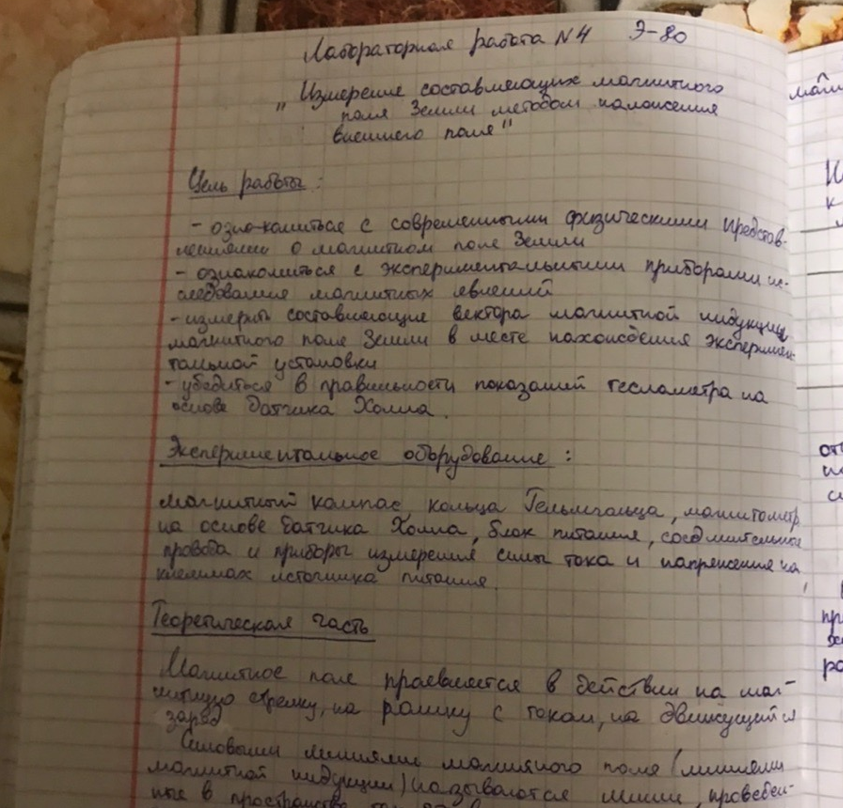 Лабораторная работа N4 Э-80
"Измерение составляющих магнитного
поля Земли методом наложения
внешнего поля"
Цель работы:
- ознакомиться с современными физическими представ-
лениями о магнитном поле Земли
- ознакомиться с экспериментальными приборами ис-
следования магнитных явлений
- измерить составляющие вектора магнитной индукции
магнитного поля Земли в месте нахождения эксперимен-
тальной установки
- убедиться в правильности показаний тесламетра на
основе датчика Холла.
Экспериментальное оборудование:
магнитный компас, кольца Гельмгольца, магнитометр
на основе датчика Холла, блок питания, соединительные
провода и приборы измерения силы тока и напряжения на
клеммах источника питания.
Теоретическая часть
Магнитное поле проявляется в действии на маг-
нитную стрелку, на рамку с током, на движущийся
заряд
Силовыми линиями магнитного поля (линиями
магнитной индукции) называются линии, проведен-
ные в пространстве